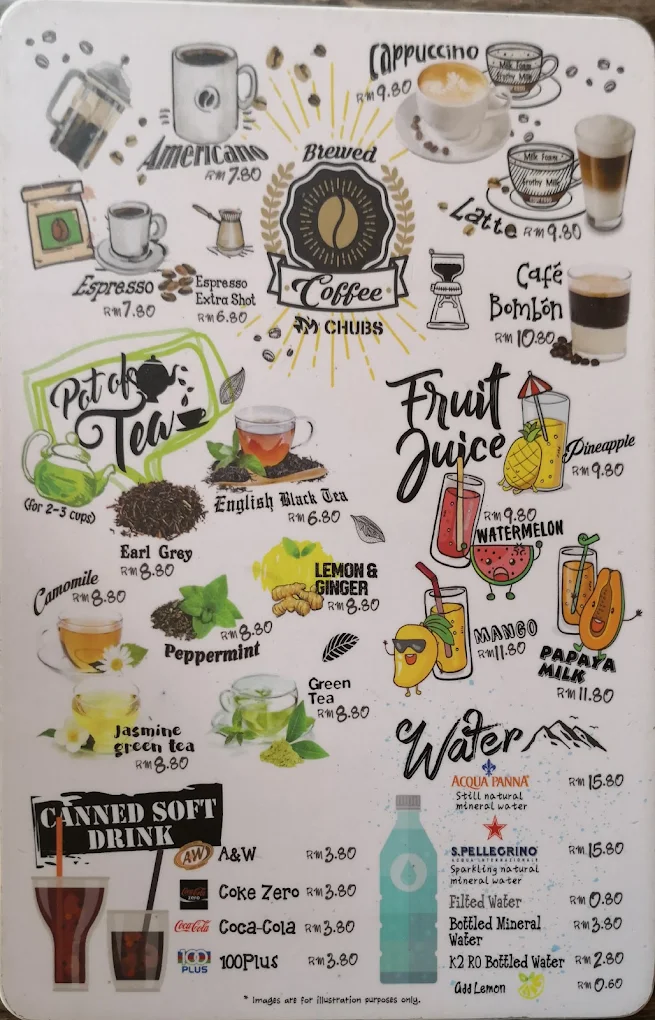 Cappuccino
RM 9.80
Milk Foam
Frothy Milk
Americano
RM 7.80
Brewed
Coffee
CHUBS
Milk Foam
Frothy Milk
Espresso
Latte RM 9.80
Espresso
RM 7.80
Espresso
Extra Shot
RM 6.80
Café
Bombón
RM 10.80
Pot of
Tea
(for 2-3 cups)
English Black Tea
RM 6.80
Earl Grey
RM 8.80
LEMON &
GINGER
RM 8.80
Camomile
RM 8.80
RM 8.80
Peppermint
Green
Tea
RM 8.80
Jasmine
green tea
RM 8.80
Fruit
Juice
Pineapple
RM 9.80
RM 9.80
WATERMELON
MANGO
RM 11.80
PAPAYA
MILK
RM 11.80
Water
ACQUA PANNA
RM 15.80
Still natural
mineral water
S.PELLEGRINO
RM 15.80
Sparkling natural
mineral water
Filted Water RM 0.80
Bottled Mineral
Water
RM 3.80
K2 RO Bottled Water RM 2.80
add Lemon RM 0.60
CANNED SOFT
DRINK
AW A&W RM 3.80
Coca-Cola zero Coke Zero RM 3.80
Coca-Cola Coca-Cola RM 3.80
100 PLUS 100Plus RM 3.80
* Images are for illustration purposes only.